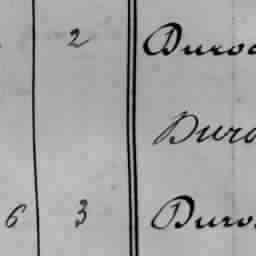 2 Duroc
Duro
6 3 Duro